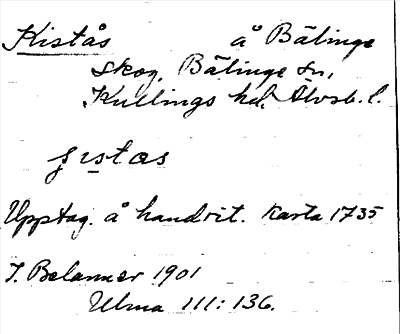 Kistås å Bälinge
skog, Bälinge sn,
Kullings hd, Älvsb. l.
Upptag. å handrit. karta 1735
T. Belanner 1901
Ulma 111: 136.